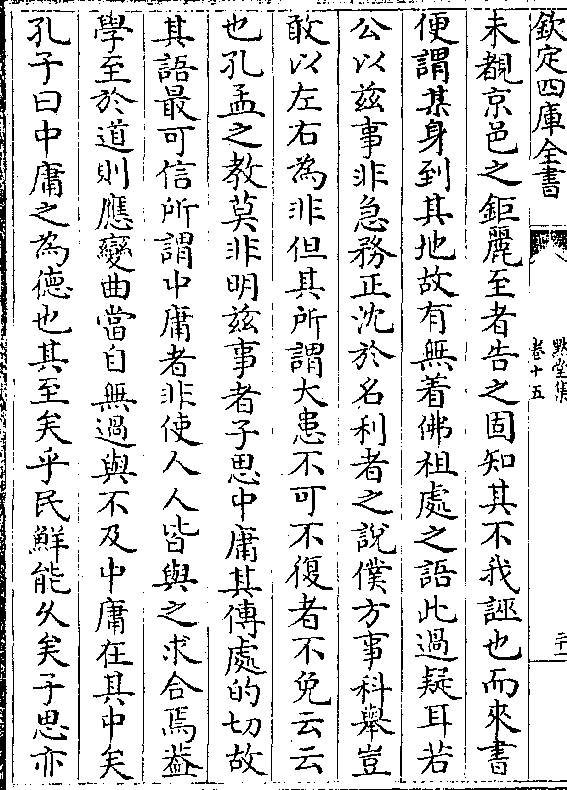 欽定四庫全書
默堂集
卷十五
未覩京邑之鉅麗至者告之固知其不我誣也而來書
便謂某身到其地故有無着佛祖處之語此過疑耳若
公以兹事非急務正沈於名利者之說僕方事科舉豈
敢以左右為非但其所謂大患不可不復者不免云云
也孔孟之教莫非明兹事者子思中庸其傳處的切故
其語最可信所謂中庸者非使人人皆與之求合焉葢
學至於道則應變曲當自無過與不及中庸在其中矣
孔子曰中庸之為德也其至矣乎民鮮能久矣子思亦